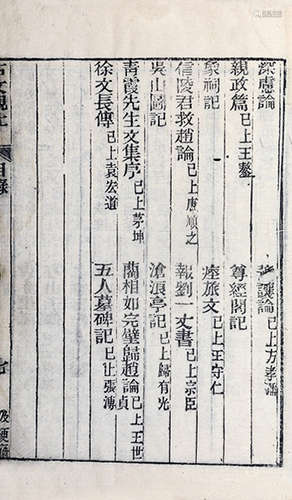 深慮論
豫讓論 已上方孝孺
親政篇 已上王鏊
尊經閣記
象祠記
瘞旅文 已上王守仁
信陵君救趙論 已上唐順之
報劉一丈書 已上宗臣
吳山圖記
滄浪亭記 已上歸有光
青霞先生文集序 已上茅坤
藺相如完璧歸趙論 已上王世貞
徐文長傳 已上袁宏道
五人墓碑記 已上張溥
古文觀止
目錄